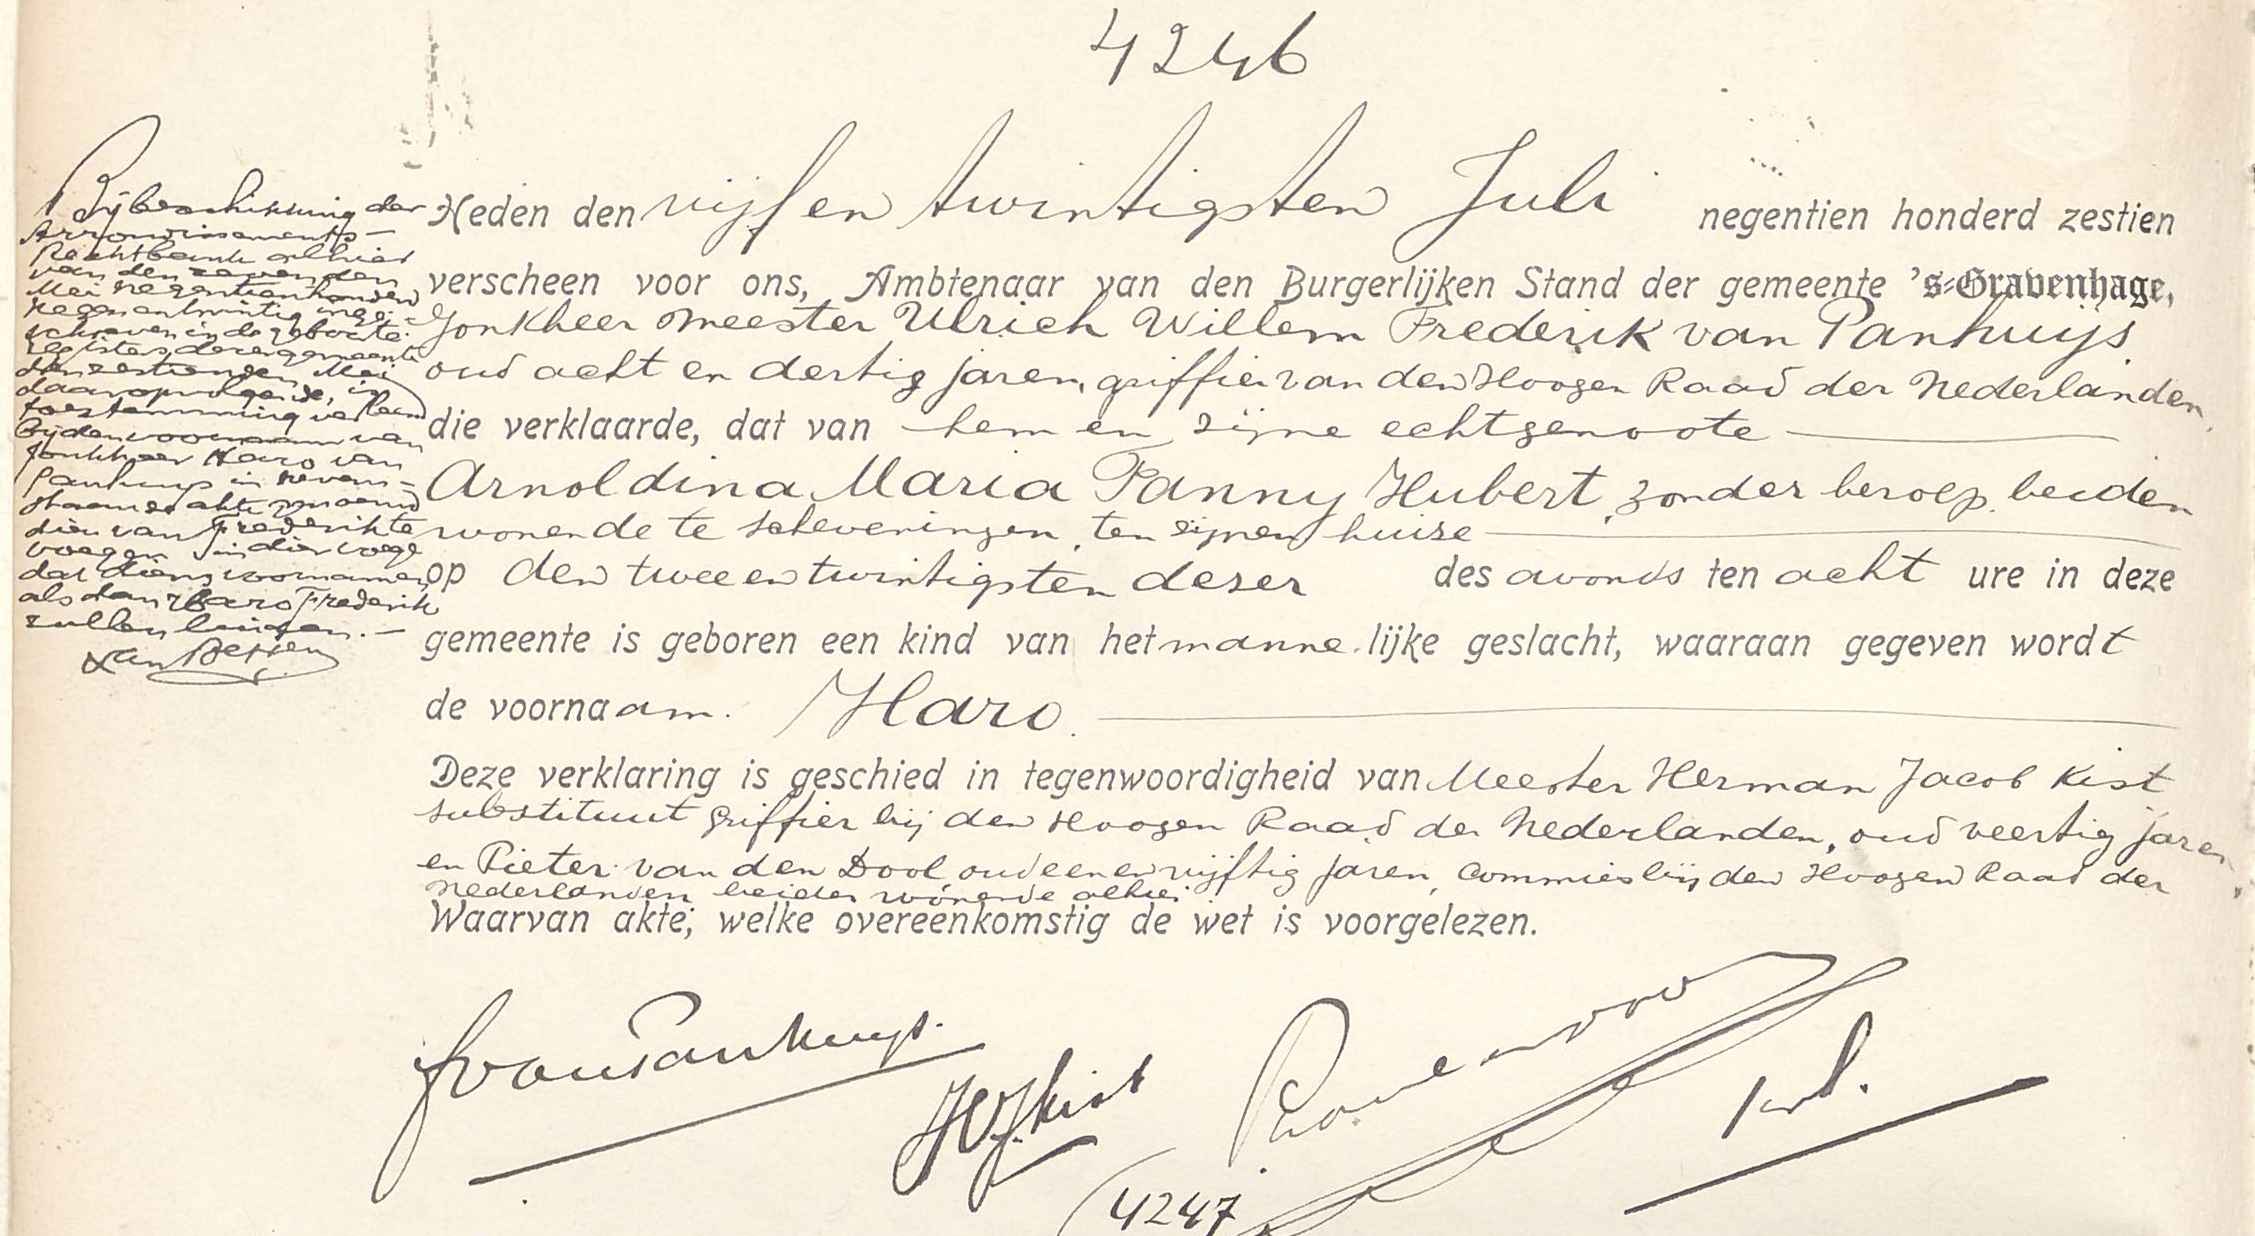 4246
Bij beschikking der
Arrondissements-
Rechtbank alhier
van den zevenden
Mei negentienhonderd
negenentwintig, inge-
schreven in de geboorte-
registers dezer gemeente
den zestienden Mei
daaropvolgende, is
toestemming verleend
bij den voornaam van
Jonkheer Haro van
Panhuys in neven-
staande akte genoemd
dien van Frederik te
voegen in dier voege
dat diens voornamen
als dan Haro Frederik
zullen luiden.-
Heden den vijf en twintigsten Juli negentien honderd zestien
verscheen voor ons, Ambtenaar van den Burgerlijken Stand der gemeente 's-Gravenhage,
Jonkheer Meester Ulrich Willem Frederik van Panhuijs
oud acht en dertig jaren, griffier van den Hoogen Raad der Nederlanden,
die verklaarde, dat van hem en zijne echtgenoote
Arnoldina Maria Fanny Hubert, zonder beroep, beiden
wonende te Scheveningen, ten zijnen huize
op den twee en twintigsten dezer des avonds ten acht ure in deze
gemeente is geboren een kind van het mannelijke geslacht, waaraan gegeven wordt
de voornaam. Haro.
Deze verklaring is geschied in tegenwoordigheid van Meester Herman Jacob Kist
substituut griffier bij den Hoogen Raad der Nederlanden, oud veertig jaren
en Pieter van den Dool oud een en vijftig jaren, commies bij den Hoogen Raad der
Nederlanden, beiden wonende alhier.
Waarvan akte, welke overeenkomstig de wet is voorgelezen.
van Panhuys.
HJKist
4247